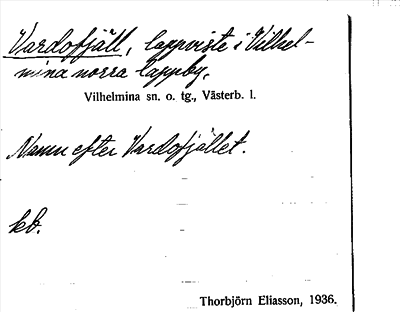 Vardofjäll, lappviste i Vilhel-
mina norra lappby.
Vilhelmina sn. o. tg., Västerb. l.
Namn efter Vardofjället.
kb.
Thorbjörn Eliasson, 1936.